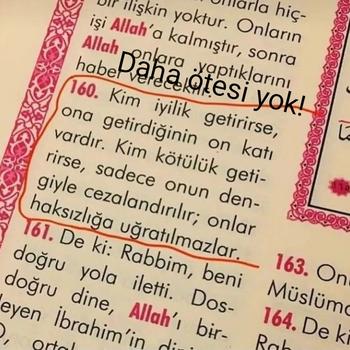 onlarla hiç-
bir ilişkin yoktur. Onların
işi Allah'a kalmıştır, sonra
Allah onlara yaptıklarını
haber verecektir.
Daha ötesi yok!
160. Kim iyilik getirirse,
ona getirdiğinin on katı
vardır. Kim kötülük geti-
rirse, sadece onun den-
giyle cezalandırılır; onlar
haksızlığa uğratılmazlar.
161. De ki: Rabbim, beni
doğru yola iletti. Dos-
doğru dine, Allah'ı bir-
leyen İbrahim'in
163.
Müslüm
164. De ki